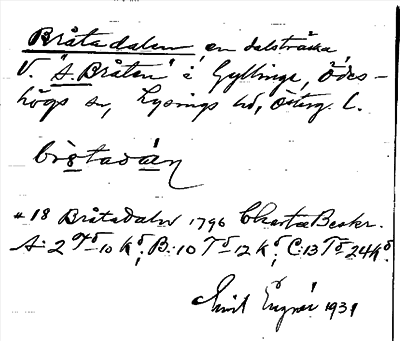 Bråtadalen, en dalsträcka
V. "S. Bråten" i Gyllinge, Ödes-
högs sn, Lysings hd, Österg. l.
# 18 Bråtadaln 1796 Charta Beskr.
A: 2 Td 10 Kd; B: 10 Td 12 Kd; C: 13 Td 24 Kd.
Emil 1931